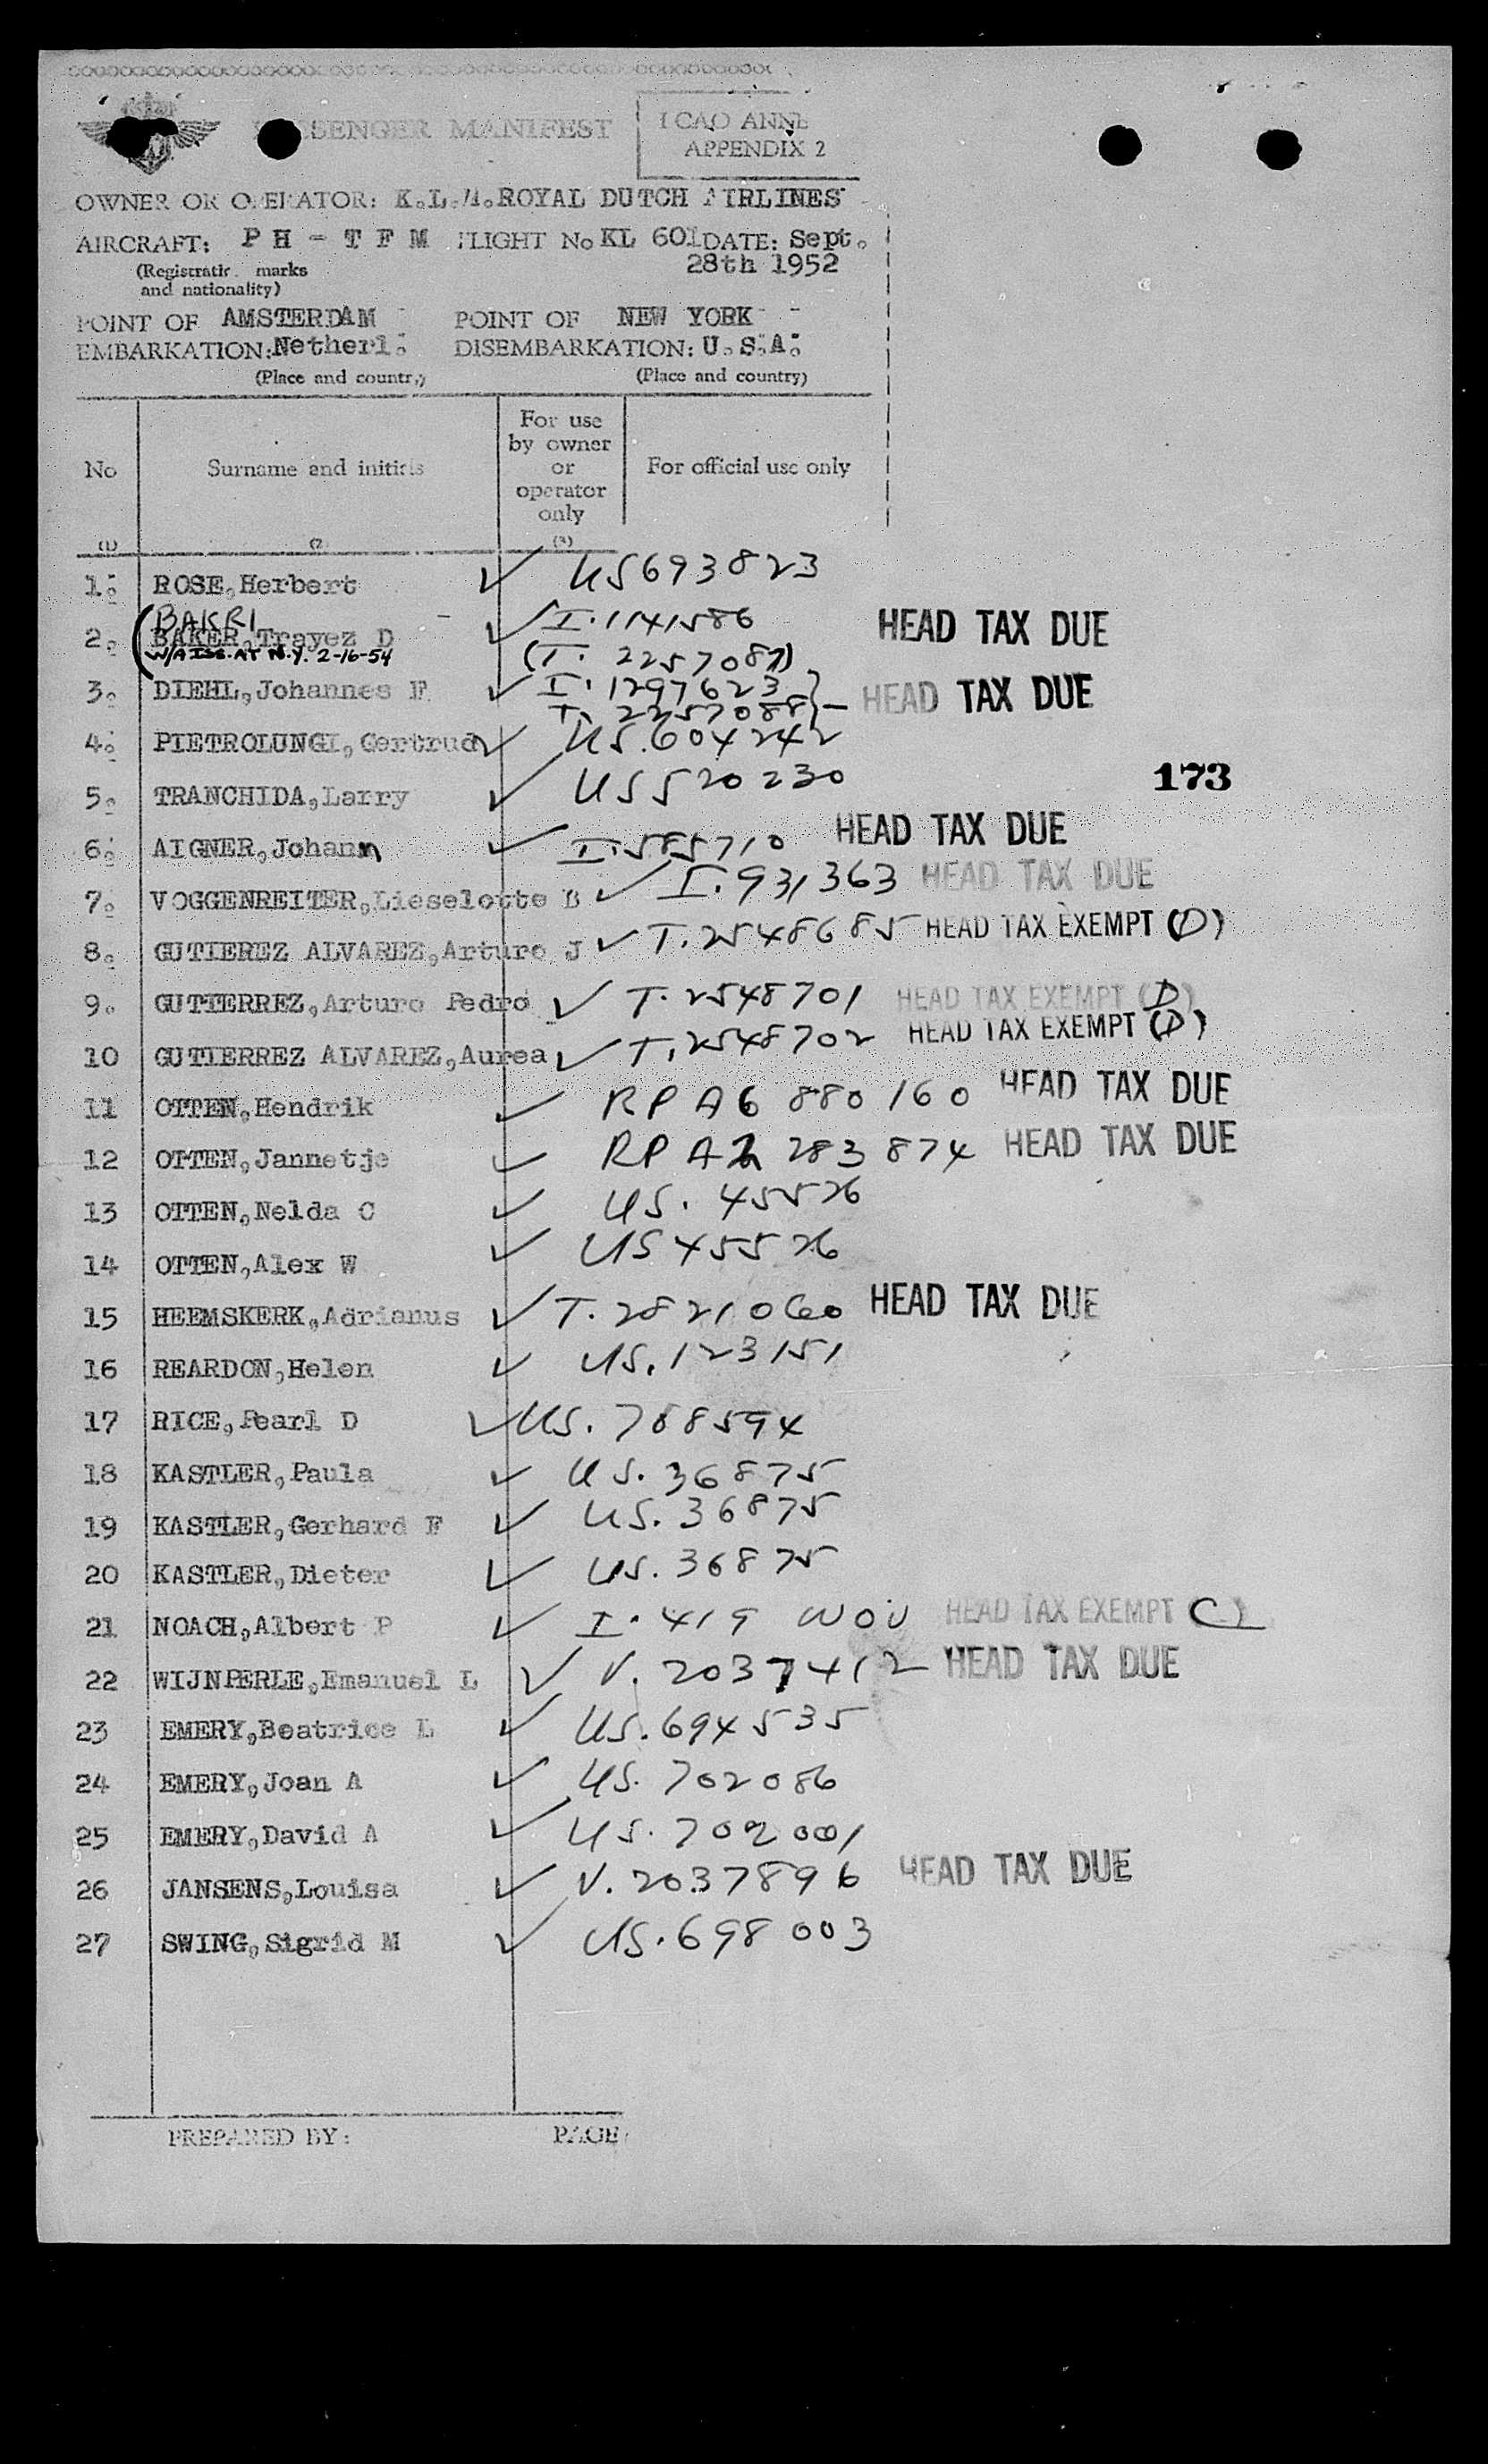 SENGER MANIFEST
ICAO ANNE
APPENDIX 2
OWNER OR OPERATOR: K.L.M. ROYAL DUTCH AIRLINES
AIRCRAFT: PH - TFM FLIGHT No KL 601 DATE: Sept.
28th 1952
(Registratio marks
and nationality)
POINT OF AMSTERDAM POINT OF NEW YORK
EMBARKATION: Netherl. DISEMBARKATION: U.S.A.
(Place and country) (Place and country)
No
Surname and initials
For use
by owner
or
operator
only
For official use only
(1) (2 (3)
1. ROSE, Herbert ✓ US693823
BAKRI
2. BAKER, Trayez D ✓ I.1141586 HEAD TAX DUE
W/A ISS. AT N.Y. 2-16-54 (T. 2257087)
3. DIEHL, Johannes F ✓ I.1297623 HEAD TAX DUE
T. 2257088
4. PIETROLUNGI, Gertrud ✓ US.604242
5. TRANCHIDA, Larry ✓ US520230
173
6. AIGNER, Johann ✓ I.585710 HEAD TAX DUE
7. VOGGENREITER, Lieselotte B ✓ I.931363 HEAD TAX DUE
8. GUTIEREZ ALVAREZ, Arturo J ✓ T.2548685 HEAD TAX EXEMPT (D)
9. GUTIERREZ, Arturo Pedro ✓ T.2548701 HEAD TAX EXEMPT (D)
10 GUTIERREZ ALVAREZ, Aurea ✓ T.2548702 HEAD TAX EXEMPT (D)
11 OTTEN, Hendrik ✓ RP A6 880160 HEAD TAX DUE
12 OTTEN, Jannetje ✓ RP A2 283874 HEAD TAX DUE
13 OTTEN, Nelda C ✓ US. 45526
14 OTTEN, Alex W ✓ US 45526
15 HEEMSKERK, Adrianus ✓ T.2821060 HEAD TAX DUE
16 REARDON, Helen ✓ US.123151
17 RICE, Pearl D ✓ US. 708594
18 KASTLER, Paula ✓ US. 36875
19 KASTLER, Gerhard F ✓ US. 36875
20 KASTLER, Dieter ✓ US. 36875
21 NOACH, Albert P ✓ I. 419 HEAD TAX EXEMPT C)
22 WIJNPERLE, Emanuel L ✓ V. 2037412 HEAD TAX DUE
23 EMERY, Beatrice L ✓ US.694535
24 EMERY, Joan A ✓ US. 702086
25 EMERY, David A ✓ US. 702001
26 JANSENS, Louisa ✓ V.2037896 HEAD TAX DUE
27 SWING, Sigrid M ✓ US.698003
PREPARED BY: PAGE